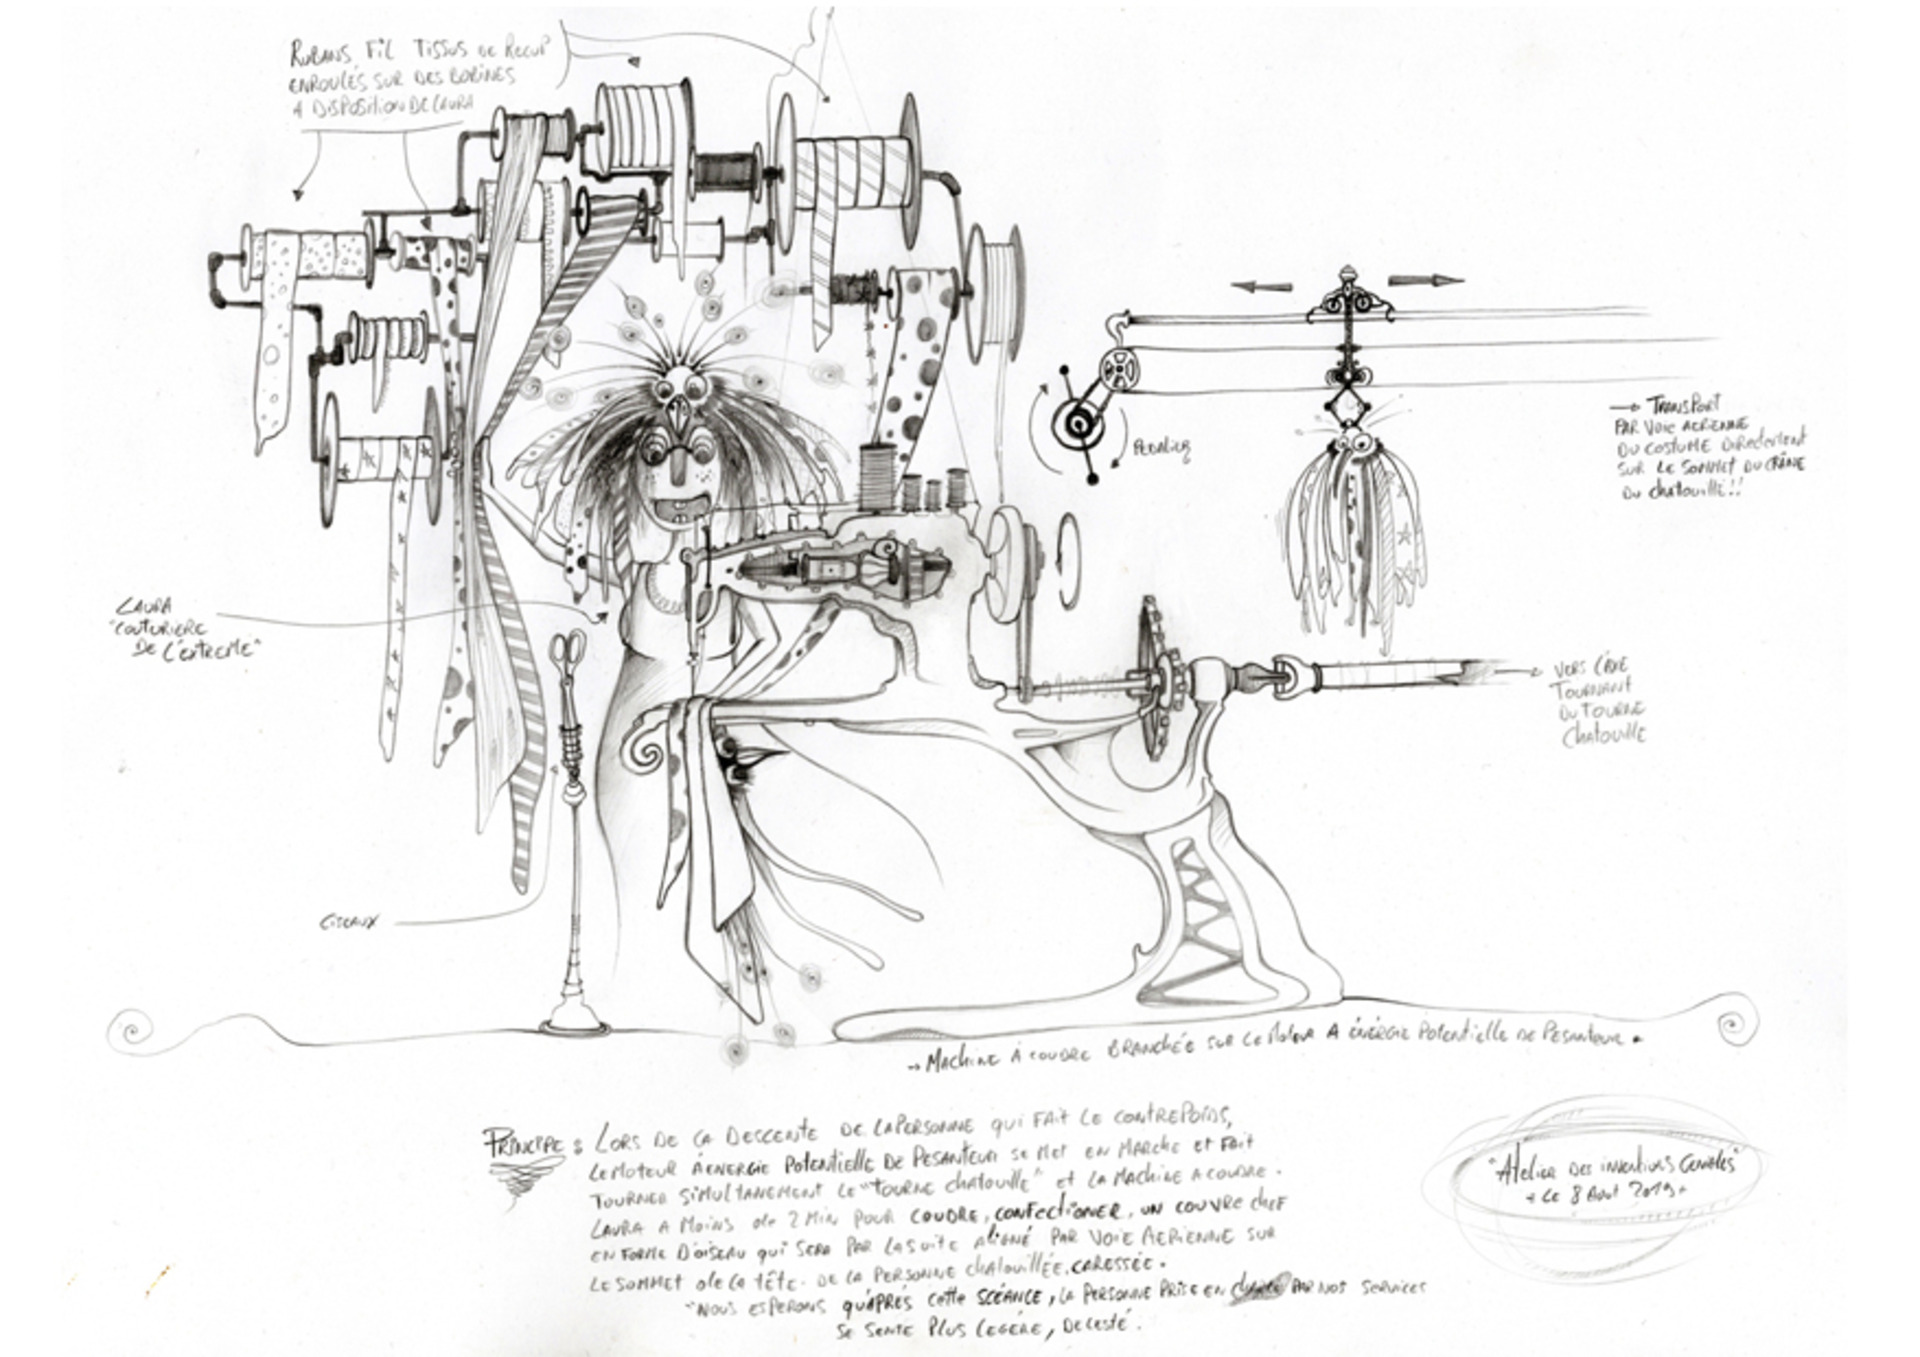 RUBANS, FIL TISSUS DE RECUP
ENROULÉS SUR DES BOBINES
A DISPOSITION DE LAURA
PEDALIER
→ TRANSPORT
PAR VOIE AERIENNE
DU COSTUME DIRECTEMENT
SUR LE SOMMET DU CRÂNE
DU CHATOUILLÉ!!
LAURA
"COUTURIERE
DE L'EXTREME"
VERS L'AXE
TOURNANT
DU TOURNE
CHATOUILLE
CISEAUX
→ MACHINE À COUDRE BRANCHÉE SUR LE MOTEUR A ÉNERGIE POTENTIELLE DE PESANTEUR.
PRINCIPE : LORS DE LA DESCENTE DE LA PERSONNE QUI FAIT LE CONTREPOIDS,
LE MOTEUR À ENERGIE POTENTIELLE DE PESANTEUR SE MET EN MARCHE ET FAIT
TOURNER SIMULTANEMENT LE "TOURNE CHATOUILLE" ET LA MACHINE A COUDRE.
LAURA A MOINS DE 2 MIN POUR COUDRE, CONFECTIONER, UN COUVRE CHEF
EN FORME D'OISEAU QUI SERA PAR LA SUITE ALIGNÉ PAR VOIE AERIENNE SUR
LE SOMMET DE LA TÊTE. DE LA PERSONNE CHATOUILLÉE, CARESSÉE.
"NOUS ESPERONS QU'APRÉS CETTE SCÉANCE, LA PERSONNE PRISE EN CHARGE PAR NOS SERVICES
SE SENTE PLUS LEGÉRE, DELESTÉ.
"ATELIER DES INVENTIONS GÉNIALES"
LE 8 AOUT 2019